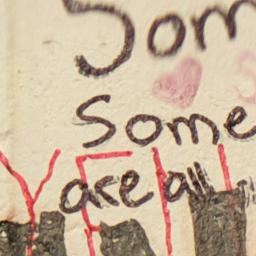 Som
Some
are all